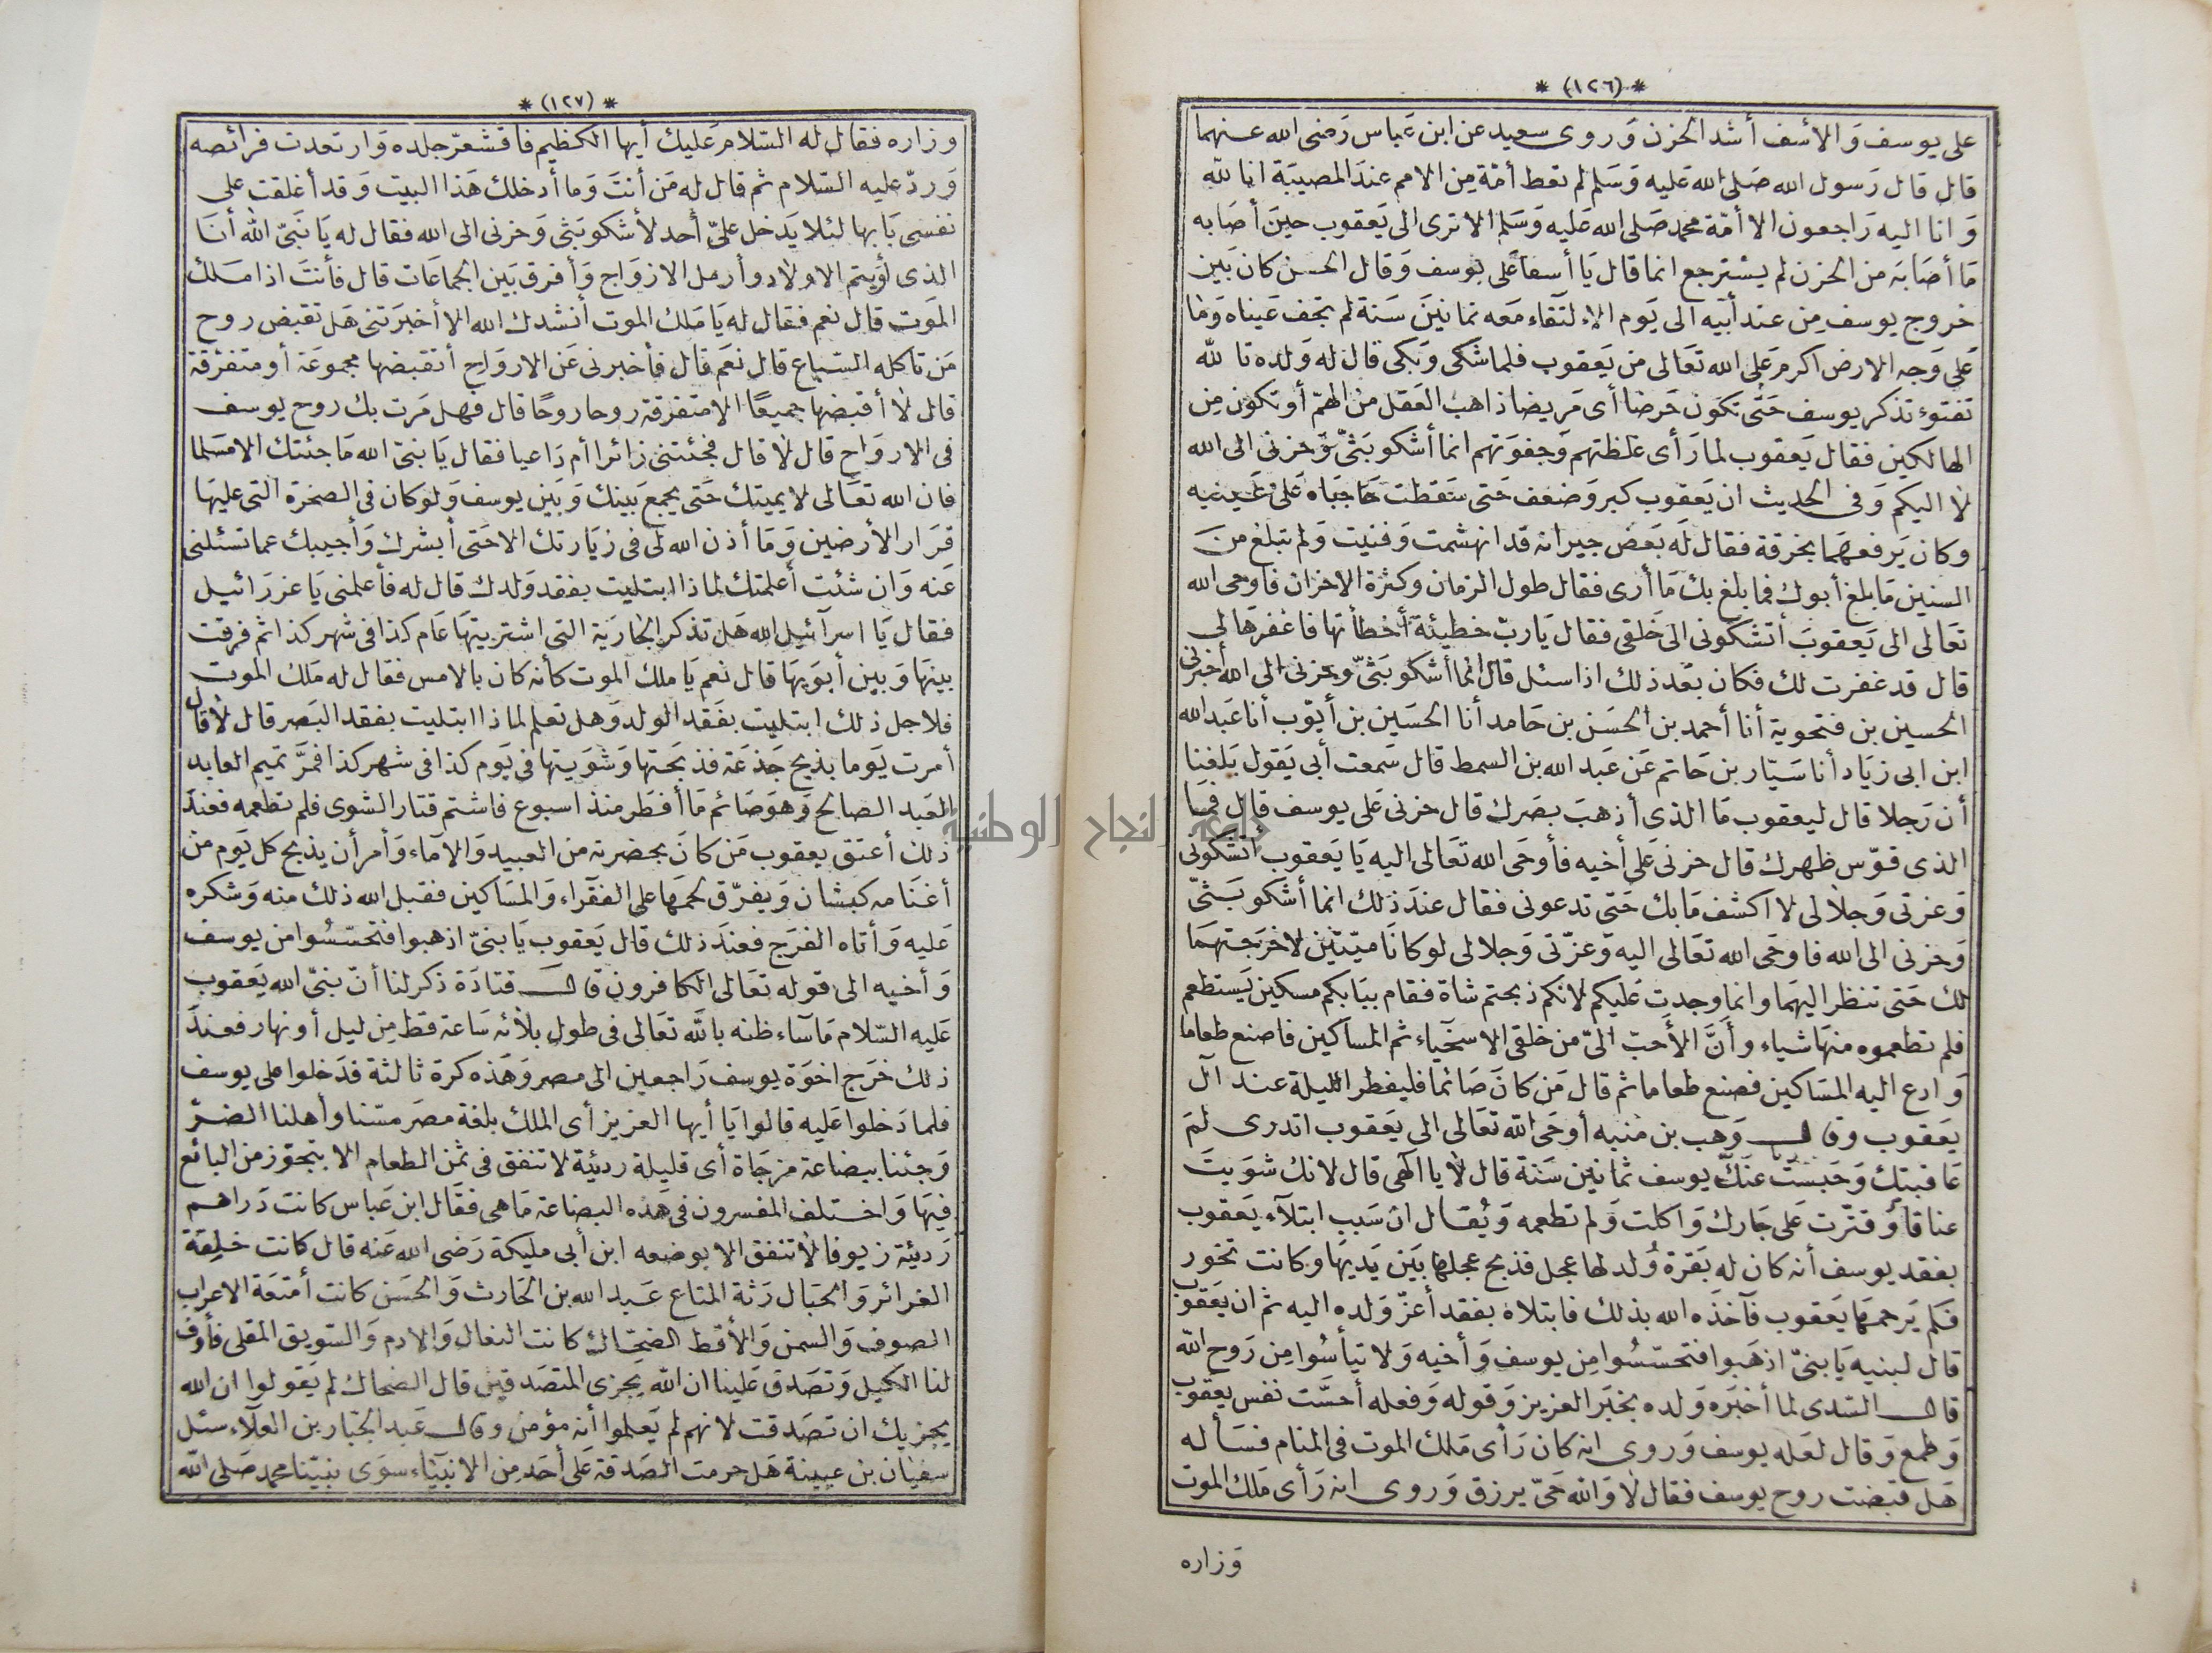 * (١٢٦) *
على يوسف وَالاسف أشد الحزن وَروى سعيد عن ابن عَباس رَضى الله عنهما
قال قال رَسول الله صَلى الله عَليه وَسَلم لم تعط أمّة مِن الامم عندَ المصيبَة انا لله
وَانا اليه رَاجعون الا أمّة محمد صَلى الله عَليه وَسَلم الا ترى الى يَعقوب حينَ أصَابه
مَا أصَابَه من الحزن لم يسترجع انما قال يَا أسفا عَلى يوسف وَقال الحسن كان بَين
خروج يوسف مِن عند أبيه الى يَوم الالتقاء مَعه ثمانينَ سَنة لم تجف عَيناه وَمَا
عَلى وَجه الارض اكرم عَلى الله تعَالى من يَعقوب فلما شكى وَبكى قال له وَلده تالله
تفتؤ تذكر يوسف حَتّى تكون حَرضا أى مَريضا ذاهب العَقل من الهمّ أو تكون مِن
الهالكين فقال يَعقوب لما رَأى غلظتهم وَجفوَتهم انما أشكو بَثّى وَحزنى الى الله
لا اليكم وَفى الحديث ان يَعقوب كبر وَضعف حَتى سَقطت حَاجبَاه عَلى عَينيه
وكان يَرفعهمَا بخرقة فقال لَه بَعض جيرانه قد انهشمت وَفنيت وَلم تبلغ منَ
السنين مَا بلغ أبوك فما بلغ بك مَا أرى فقال طول الزمان وكثرة الاحزان فاوحى الله
تعَالى الى يَعقوبَ أتشكونى الى خَلقى فقال يَا ربّ خطيئة أخطأتها فاغفرهَا لى
قال قد غفرت لك فكان بعد ذلك اذا سئل قال انما أشكو بَثّى وحزنى الى الله أخبرنى
الحسين بن فتحوية أنا أحمد بن الحسَن بن حَامد أنا الحسَين بن أيوّب أنا عَبد الله
ابن ابى زيَاد أنا سَيّار بن حَاتم عَن عَبد الله بن السمط قال سَمعت أبى يَقول بَلغنا
أن رَجلا قال ليعقوب مَا الذى أذهبَ بصَرك قال حزنى عَلى يوسف قال فمَا
الذى قوّس ظهرك قال حزنى عَلى أخيه فأوحَى الله تعَالى اليه يَا يَعقوب أتشكونى
وَعزتى وَجلالى لا اكشف مَا بك حَتى تدعونى فقال عندَ ذلك انما أشكو بَثّى
وَحزنى الى الله فاوحَى الله تعَالى اليه وَعزّتى وَجلالى لو كانَا ميّتين لاخرَجتهمَا
لك حَتى تنظر اليهمَا وانما وجدت عَليكم لانكم ذبحتم شاة فقام ببَابكم مسكين يَستطعم
فلم تطعموه منهَا شياء وأنّ الأحبّ الىّ من خلقى الاسخياء ثم المساكين فاصنع طعاما
وَادع اليه المسَاكين فصنع طعاما ثم قال مَن كانَ صَائما فليفطر الليلة عند آل
يعَقوب وقال وَهب بن منبه أوحَى الله تعَالى الى يَعقوب اتدرى لمَ
عَاقبتك وَحَبسْت عنكَ يوسف ثمانين سَنة قال لا يا الهى قال لانك شوَيتَ
عناقا وَقترّت عَلى جَارك وَاكلت وَلم تطعمه وَيُقال ان سَبب ابتلآء يَعقوب
بفقد يوسف أنه كان له بَقرة وُلد لها عجل فذبح عجلها بَين يَديهَا وكانت تخور
فلم يَرحمهَا يَعقوب فآخذَه الله بذلك فابتلاه بفقد أعزّ وَلده اليه ثم ان يَعقوب
قال لبنيه يَا بنىّ اذهَبوا فتحسّسُوا مِن يوسف وَأخيه وَلا تيأسُوا مِن رَوح الله
قال السّدى لما أخبَره وَلده بخبَر العزيز وَقوله وَفعله أحسَّت نفس يعَقوب
وَطمع وَقال لعَله يوسف وَروى انه كان رَأى مَلك الموت فى المنام فسَأله
هَل قبضت روح يوسف فقال لا وَالله حَىّ يرزق وَروى انه رَأى مَلك الموت
وَزاره
* (١٢٧) *
وزاره فقال له السّلام عَليك أيها الكظيم فاقشعرّ جلده وَارتعدت فرائصه
وَردّ عليه السّلام ثم قال له مَن أنتَ وَما أدخلك هَذا البيت وَقد أغلقت على
نفسى بَابها لئلا يَدخل علىّ أحد لأشكو بَثى وَحزنى الى الله فقال له يَا نبىّ الله أنَا
الذى أويتم الاولاد وأرمل الازوَاج وَأفرق بَين الجماعَات قال فأنتَ اذا مَلك
الموَت قال نعم فقال له يَا مَلك الموت أنشدك الله الا أخبَرتنى هَل تقبض روح
مَن تاكله السّباع قال نعَم قال فأخبرنى عَن الاروَاح أتقبضها مجموعَة أو متفرّقة
قال لا أقبضها جميعًا الا متفرّقة روحا روحًا قال فهل مَرت بك روح يوسف
فى الاروَاح قال لا قال فجئتنى زائرا أم دَاعيا فقال يَا نبىّ الله مَا جئتك الا مسَلما
فان الله تعَالى لا يميتك حَتى يجمعَ بَينك وَبَين يوسف وَلو كان فى الصخرة التى عليهَا
قرَار الأرضين وَمَا أذن الله لى فى زيَارتك الا حَتى أبشرك وَأجيبك عما تسئلنى
عَنه وَان شئت أعلمتك لماذا ابتليت بفقد وَلدك قال له فأعلمنى يَا عزرَائيل
فقال يَا اسرآئيل الله هَل تذكر الجاريَة التى اشتريتهَا عَام كذا فى شهر كذا ثم فرقت
بينهَا وَبين أبوَيهَا قال نعم يَا ملك الموت كأنه كان بالامس فقال له مَلك الموت
فلاجل ذلك ابتليت بفَقد الولد وَهل تعَلم لماذا ابتليت بفقد البَصر قال لا قال
أمرت يَوما بذبح جَذعَة فذبحَتها وَشوَيتها فى يَوم كذا فى شهر كذا فمَرَّ تميم العابد
العَبد الصالح وَهوَ صَائم مَا أفطَر منذ اسبوع فاشتم قتار الشوى فلم تطعمه فعندَ
ذلك أعتق يعقوب مَن كانَ بحضرته من العبيد وَالآماء وَأمر أن يذبح كل يَوم من
أغنَامه كبشان وَيفرّق لحمهَا على الفقَراء وَالمسَاكين فقبل الله ذلك منه وَشكره
عَليه وَأتاه الفرَج فعندَ ذلك قال يَعقوب يَا بنىّ اذهبوا فتحسّسُوا من يوسف
وَأخيه الى قوله تعَالى الكافرون قال قتادَة ذكر لنا أنّ نبىّ الله يَعقوب
عَليه السّلام مَا سآء ظنه بالله تعَالى فى طول بلائه سَاعة قط مِن ليل أو نهار فعندَ
ذلك خرَج اخوَة يوسف رَاجعين الى مصر وَهَذه كرة ثالثة فدَخلوا على يوسف
فلما دَخلوا عَليه قالوا يَا أيها العزيز أى الملك بلغة مصَر مسّنا وأهلنا الضرّ
وَجئنا ببضاعة مزجَاة أى قليلة رديئة لا تنفق فى ثمن الطعام الا بتجوّز من البائع
فيهَا وَاختلف المفسرون فى هَذه البضاعة مَا هى فقَال ابن عَباس كانت دَراهم
رَديئة زيوفا لا تنفق الا بوضعه ابن أبى مليكة رَضى الله عَنه قال كانت خلِقة
الغرائر وَالحبَال رَثة المتاع عَبد الله بن الحَارث وَالحسَن كانت أمتعَة الاعراب
الصوف وَالسمن وَالأقط الضحّاك كانت النعال وَالادم وَالسّويق المقلى فأوف
لنا الكيل وَتصَدق عَلينا ان الله يجزى المتصَدقين قال الضحاك لم يَقولوا ان الله
يجزيك ان تصَدقت لانهم لم يَعلموا أنه مؤمن وقال عَبد الجبّار بن العلآء سئل
سفيَان بن عيينة هَل حرمت الصَدقة عَلى أحَد من الانبيَاء سوَى نبيّنا محمد صَلى الله
جامعة النجاح الوطنية